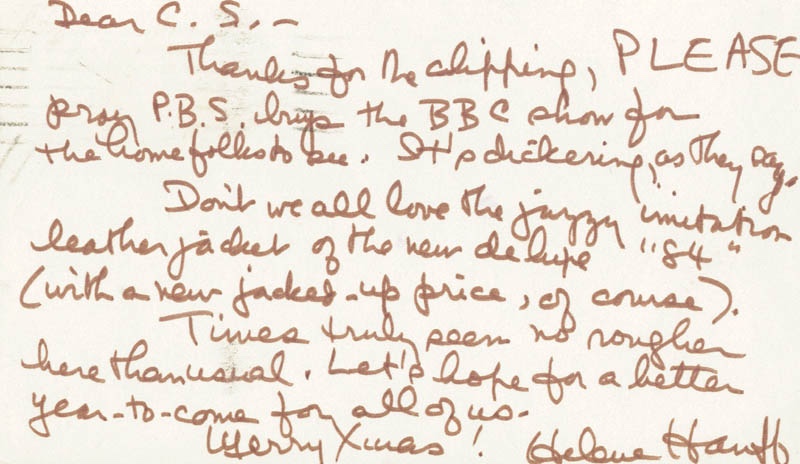 Dear C. S. –
Thanks for the clipping, PLEASE
pray P.B.S. buys the BBC show for
the home folks to see. It's dickering, as they say.
Don't we all love the jazzy imitation
leather jacket of the new de luxe "84"
(with a new jacked-up price, of course).
Times truly seem no rougher
here than usual. Let's hope for a better
year-to-come for all of us.
Merry Xmas! Helene Hanff